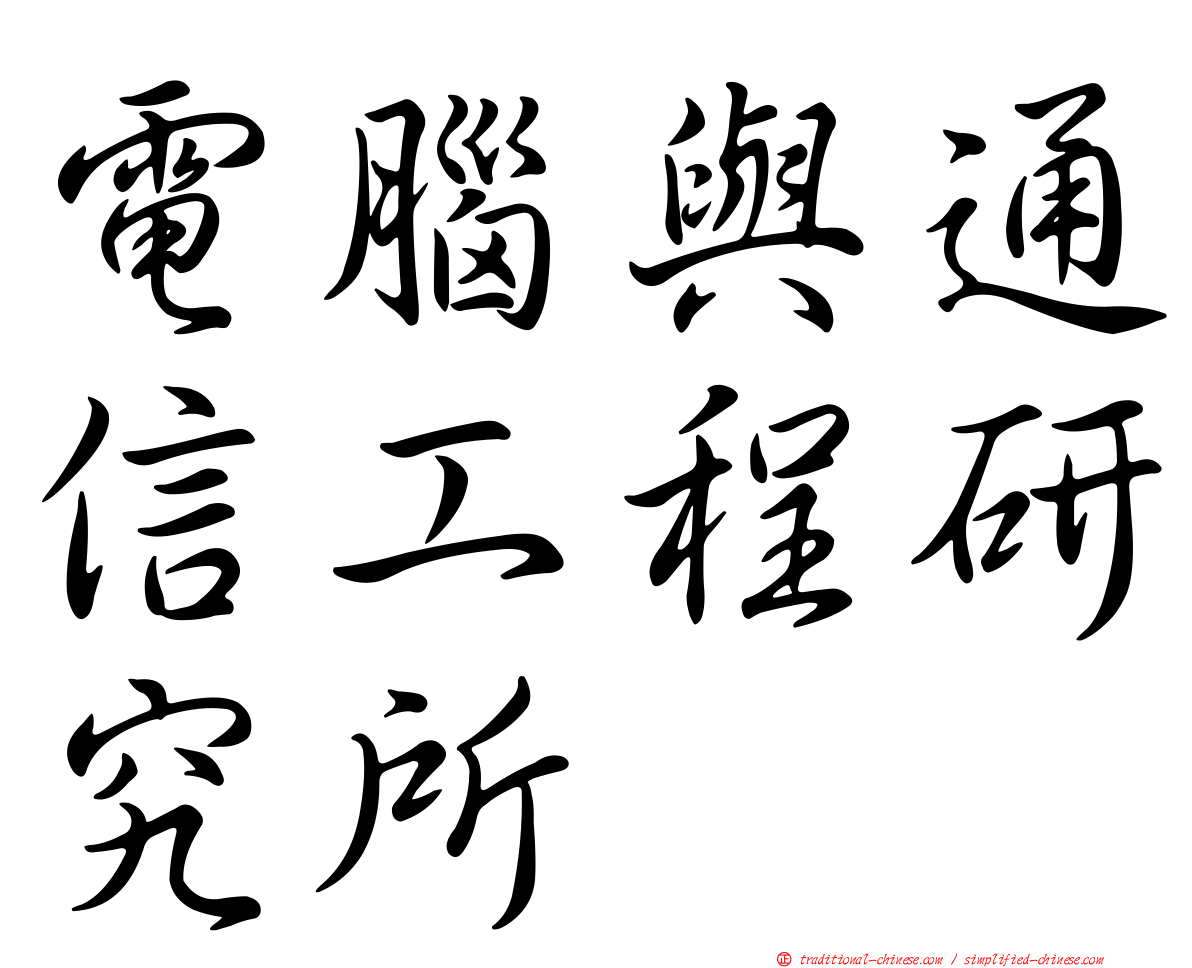 電腦與通
信工程研
究所
㊣ traditional-chinese.com / simplified-chinese.com